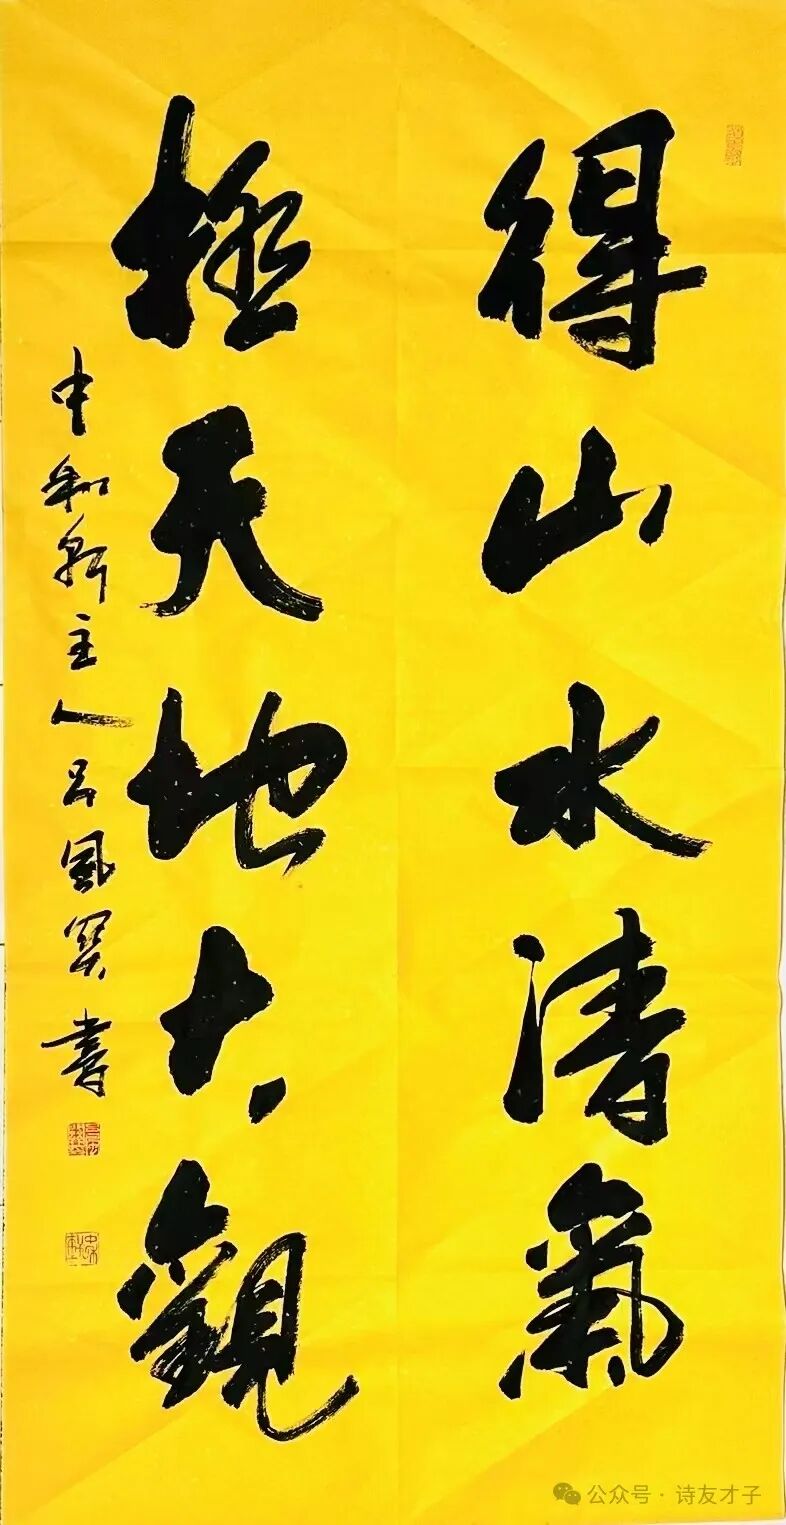 得山水清氣
極天地大觀
中和軒主人呂風賢書
公众号·诗友才子